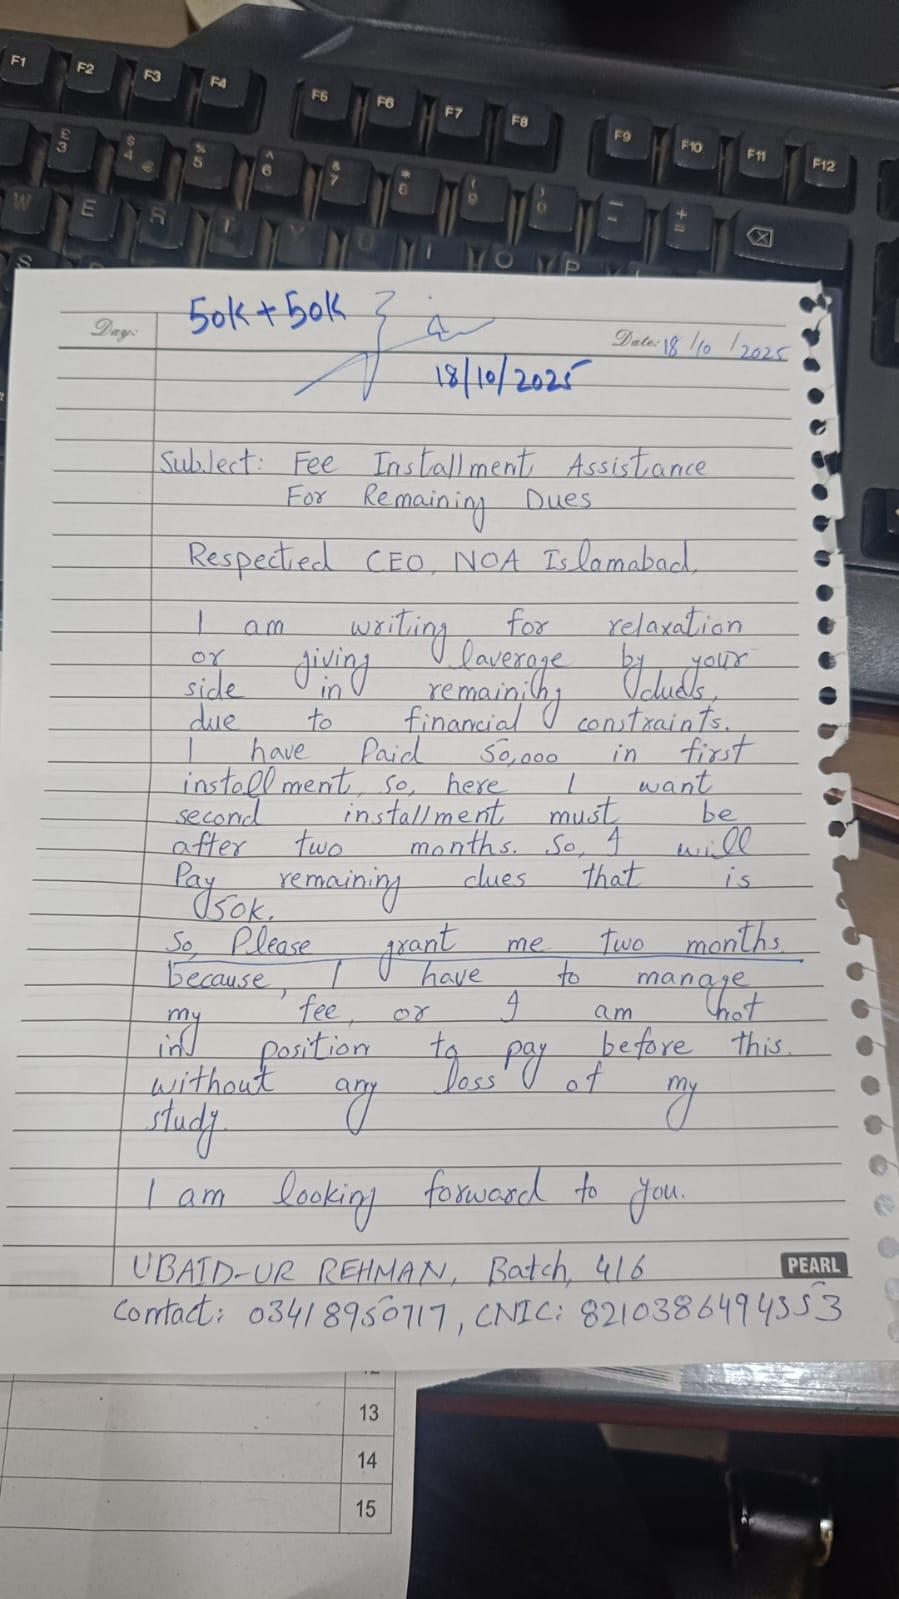 F1 F2 F3 F4 F5 F6 F7 F8 F9 F10 F11 F12
£ 3 $ 4 € % 5 ^ 6 & 7 * 8 ( 9 ) 0 _ - + =
W E R T Y U I O P
S
50k + 50k
Day:
Date: 18/10/2025
18/10/2025
Subject: Fee Installment Assistance
For Remaining Dues
Respected CEO, NOA Islamabad,
I am writing for relaxation
or giving laverage by your
side in remaining dues,
due to financial constraints.
I have Paid 50,000 in first
installment, so, here I want
second installment must be
after two months. So, I will
Pay remaining dues that is
50k.
So, Please grant me two months
because, I have to manage
my fee, or I am not
in position to pay before this.
without any loss of my
study.
I am looking forward to you.
UBAID-UR REHMAN, Batch, 416
PEARL
Contact: 03418950717, CNIC: 8210386494353
13
14
15